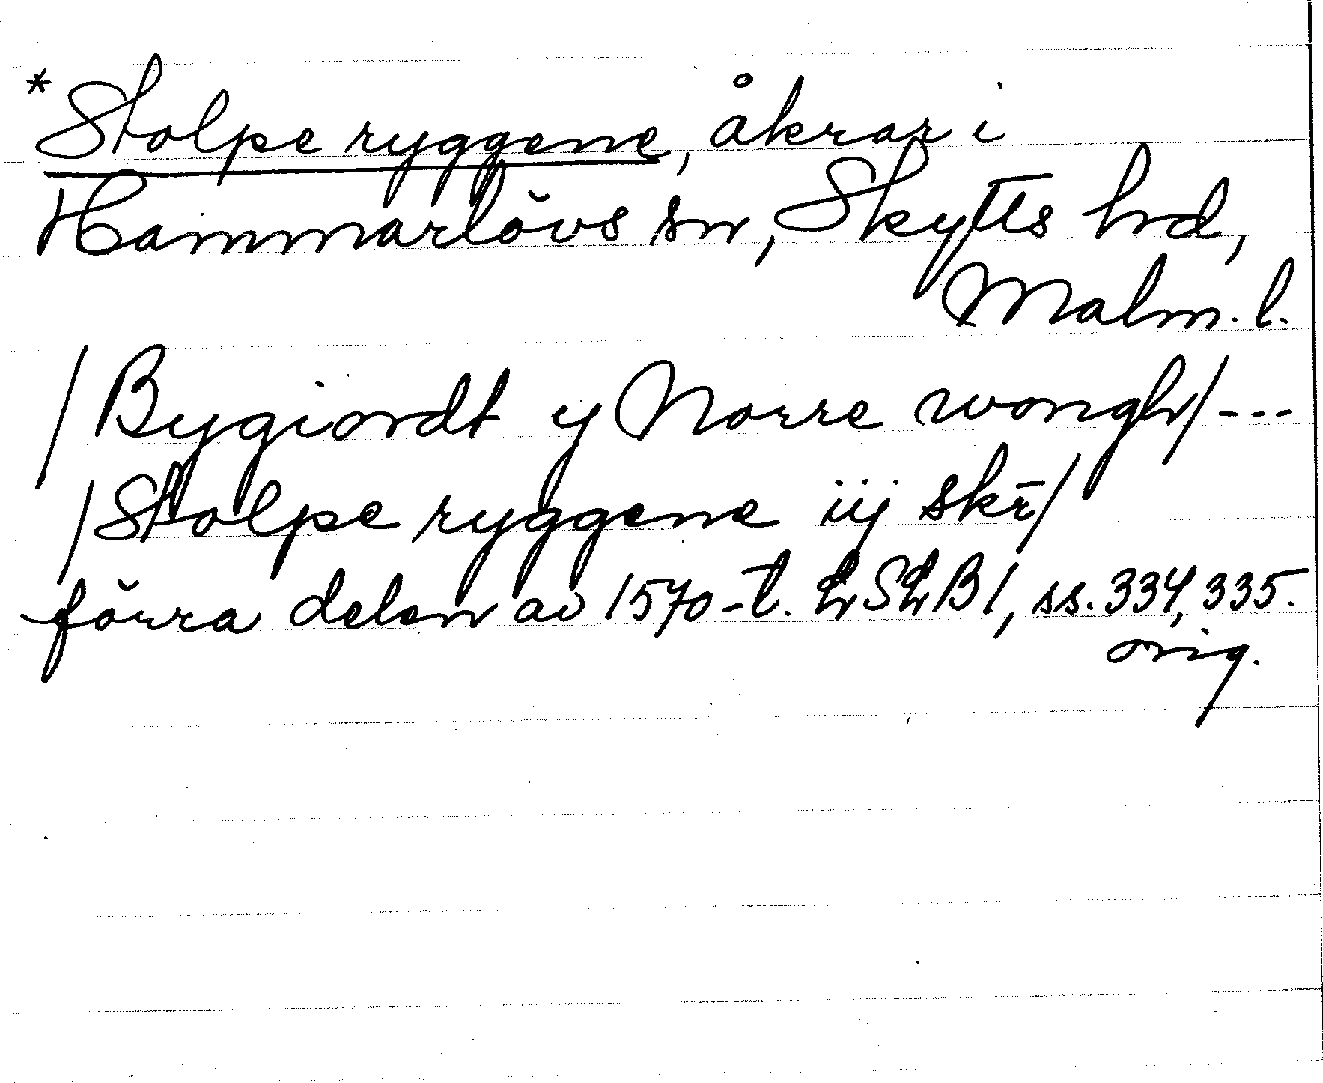 *Stolpe ryggene, åkrar i
Hammarlövs sn, Skytts hd,
Malm. l.
/Bygiordt y Norre wongh/---
/Stolpe ryggene iij skr̄/
förra delen av 1570-t. LSLB 1, ss. 334, 335.
orig.